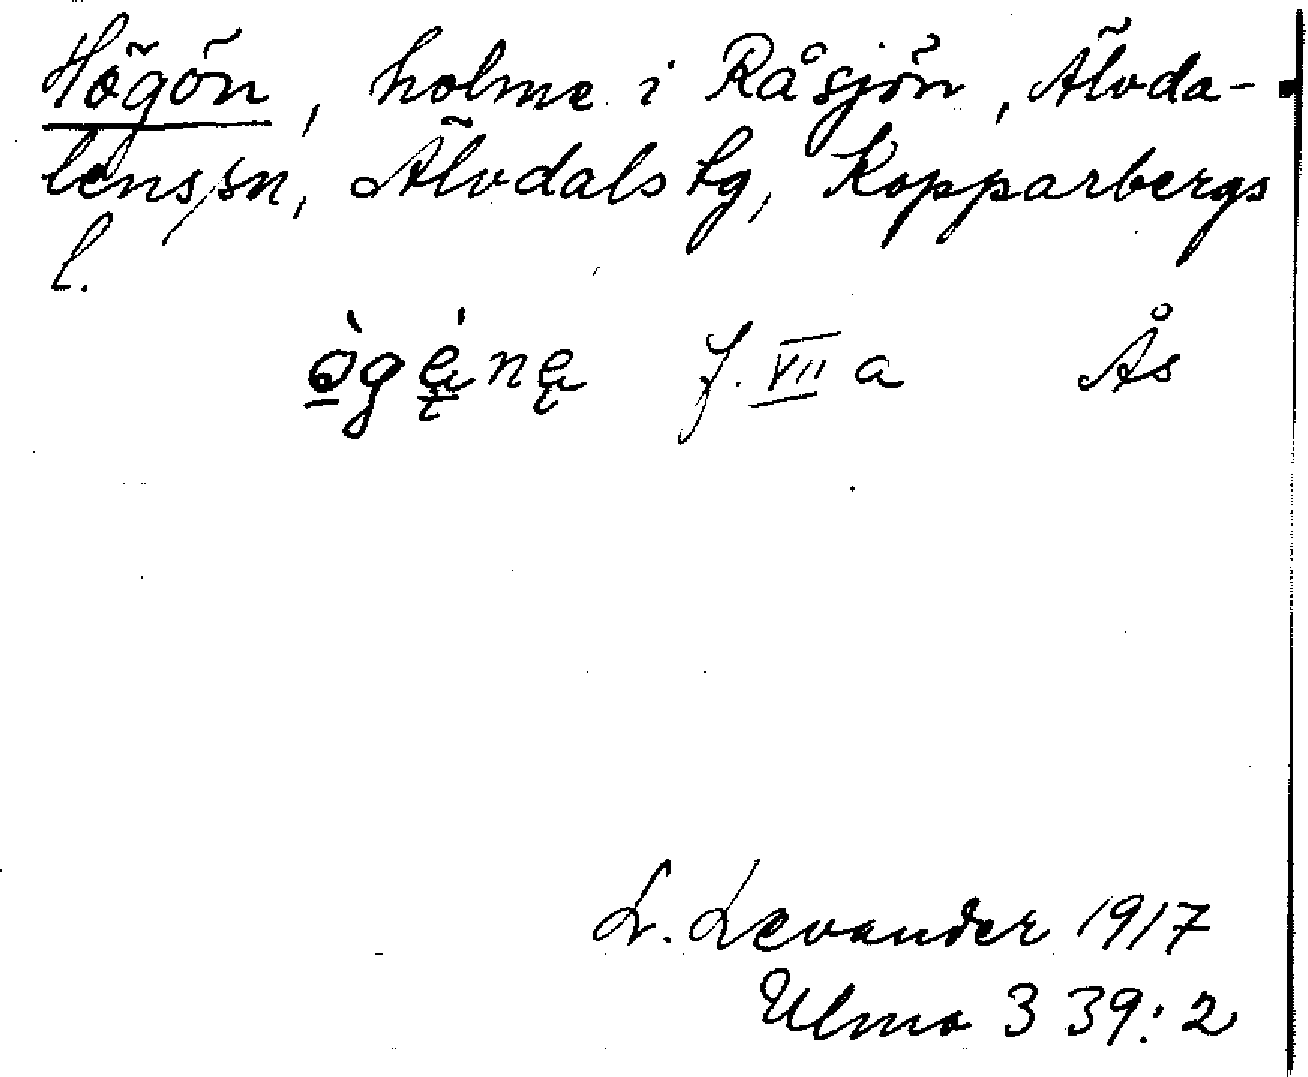 Högön, holme i Råsjön, Älvda-
lens sn, Älvdals tg, Kopparbergs
l.
ò̱gę̱́nę f. VII a Ås
L. Levander 1917
Ulma 339:2